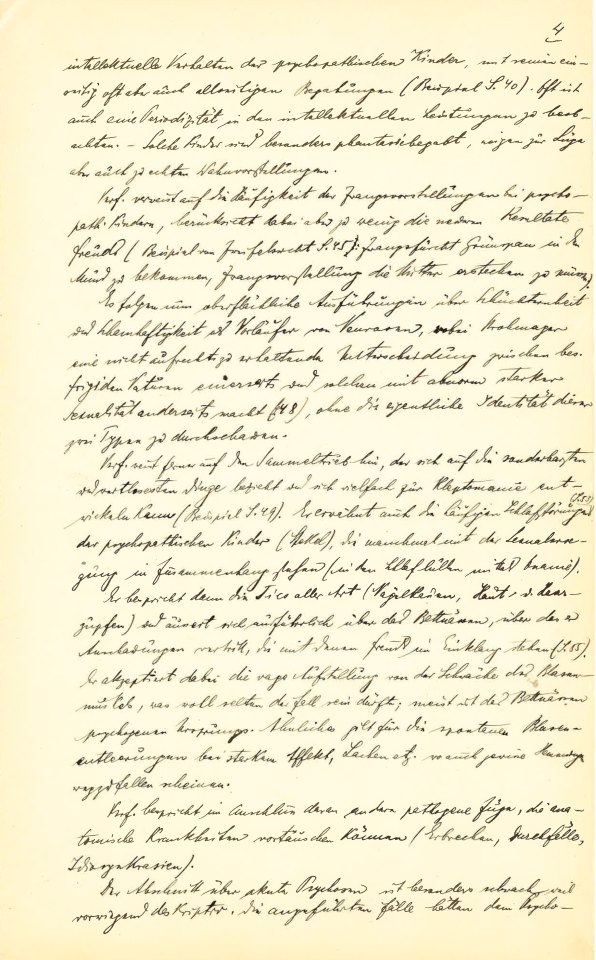 4
intellektuelle Verhalten der psychopathischen Kinder, mit seinen ein-
seitig oft aber auch allseitigen Begabungen (Beispiel S. 40). Oft ist
auch eine Periodizität in den intellektuellen Leistungen zu beob-
achten. – Solche Kinder sind besonders phantasiebegabt, neigen zur Lüge
aber auch zu echten Wahnvorstellungen.
Verf. verweist auf die Häufigkeit der Zwangsvorstellungen bei psycho-
path. Kindern, berücksicht dabei aber zu wenig die neueren Resultate
Freuds (Beispiel von S. 45): Zwangsfurcht Grünspan in den
Mund zu bekommen, Zwangsvorstellung die Mutter erstechen zu müssen).
Es folgen nun oberflächliche Ausführungen über Schüchternheit
und Schamhaftigkeit als Vorläufer von Neurosen, wobei Strohmayer
eine nicht aufrecht zu erhaltende Unterscheidung zwischen bes.
frigiden Naturen einerseits und solchen mit abnorm starker
Sexualität anderseits macht (48), ohne die eigentliche Identität dieser
zwei Typen zu durchschauen.
Verf. weist ferner auf den Sammeltrieb hin, der sich auf die sonderbarsten
und wertlosesten Dinge bezieht und sich vielfach zur Kleptomanie ent-
wickeln kann (Beispiel S. 49). Er erwähnt auch die häufigen Schlafstörungen (S. 53)
der psychopathischen Kinder (Stekel), die manchmal mit der Sexualerre-
gung in Zusammenhang stehen (in den Schlaf lullen mittels Onanie).
Er bespricht dann die Tics aller Art (Nägelkauen, Haut- u. Haar-
zupfen) und äussert sich ausführlich über das Bettnässen, über das er
Anschauungen vertritt, die mit denen Freuds im Einklang stehen (S. 55).
Er akzeptiert dabei die vage Aufstellung von der Schwäche des Blasen-
muskels, was wohl selten der Fall sein dürfte; meist ist das Bettnässen
psychogenen Ursprungs. Ähnliches gilt für die spontanen Blasen-
entleerungen bei starkem Affekt, Lachen etz. wo auch gewisse Hemmungen
wegzufallen scheinen.
Verf. bespricht im Anschluss daran andere pathogene Züge, die ana-
tomische Krankheiten vortäuschen können (Erbrechen, Durchfälle,
Idiosynkrasien).
Der Abschnitt über akute Psychosen ist besonders schwach, weil
vorwiegend deskriptiv. Die angeführten Fälle hätten dem Psycho-